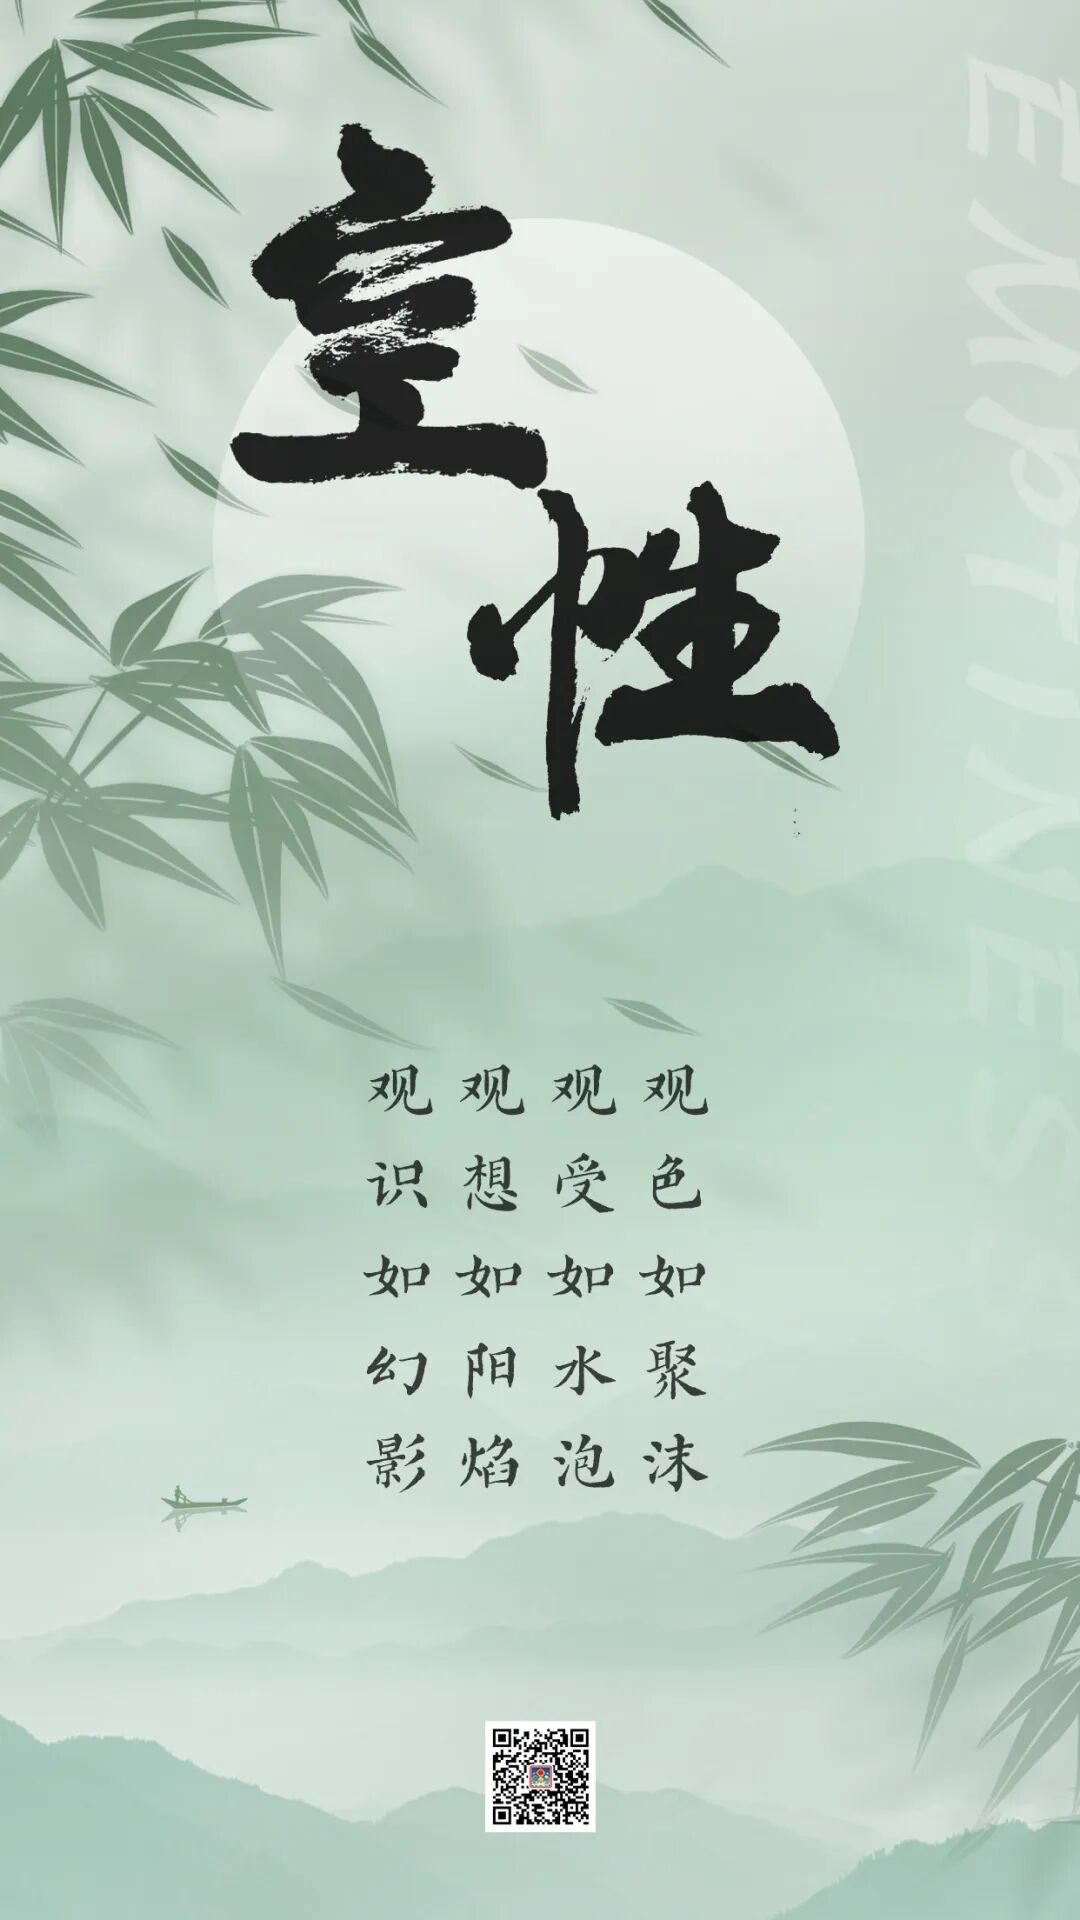 空性
观色如聚沫
观受如水泡
观想如阳焰
观识如幻影
EMPTINESS